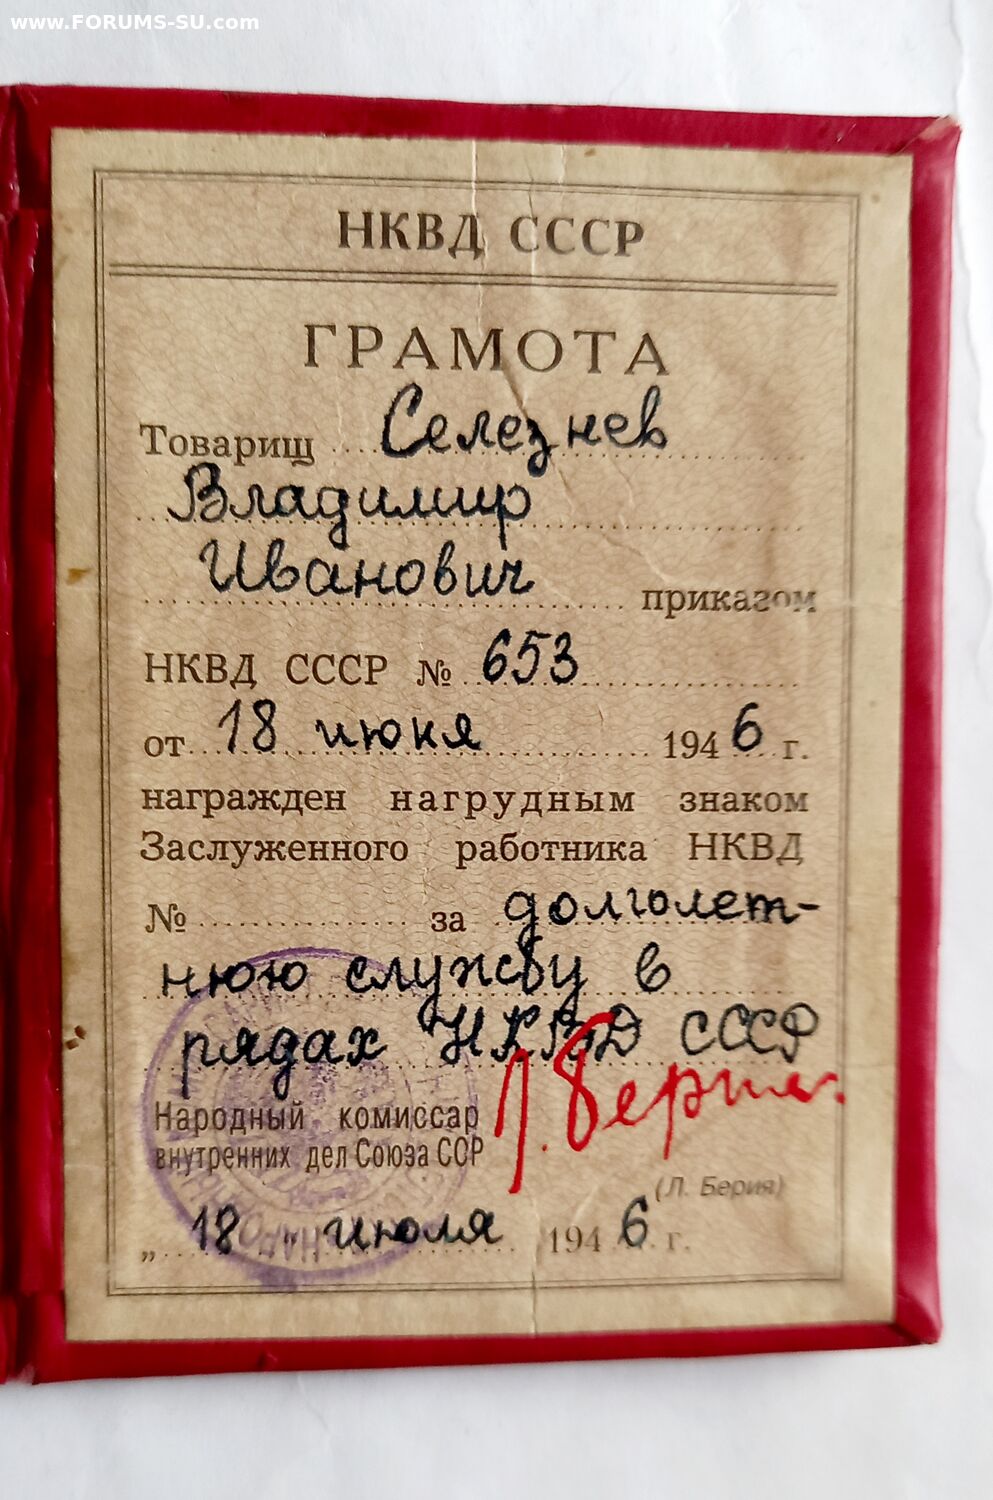 www.FORUMS-SU.com
НКВД СССР
ГРАМОТА
Товарищ Селезнев
Владимир
Иванович приказом
НКВД СССР № 653
от 18 июня 1946 г.
награжден нагрудным знаком
Заслуженного работника НКВД
№ за долголет-
нюю службу в
рядах НКВД СССР
Народный комиссар
внутренних дел Союза ССР
Л. Берия.
(Л. Берия)
„ 18 „ июля 1946 г.